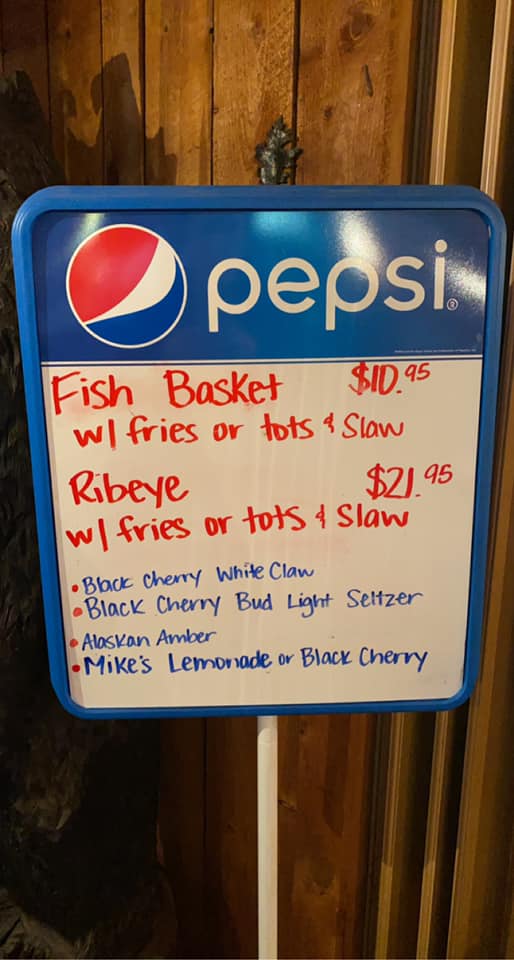 pepsi®
Fish Basket $10.95
w/ fries or tots & Slaw
Ribeye $21.95
w/ fries or tots & Slaw
• Black Cherry White Claw
• Black Cherry Bud Light Seltzer
• Alaskan Amber
• Mike's Lemonade or Black Cherry